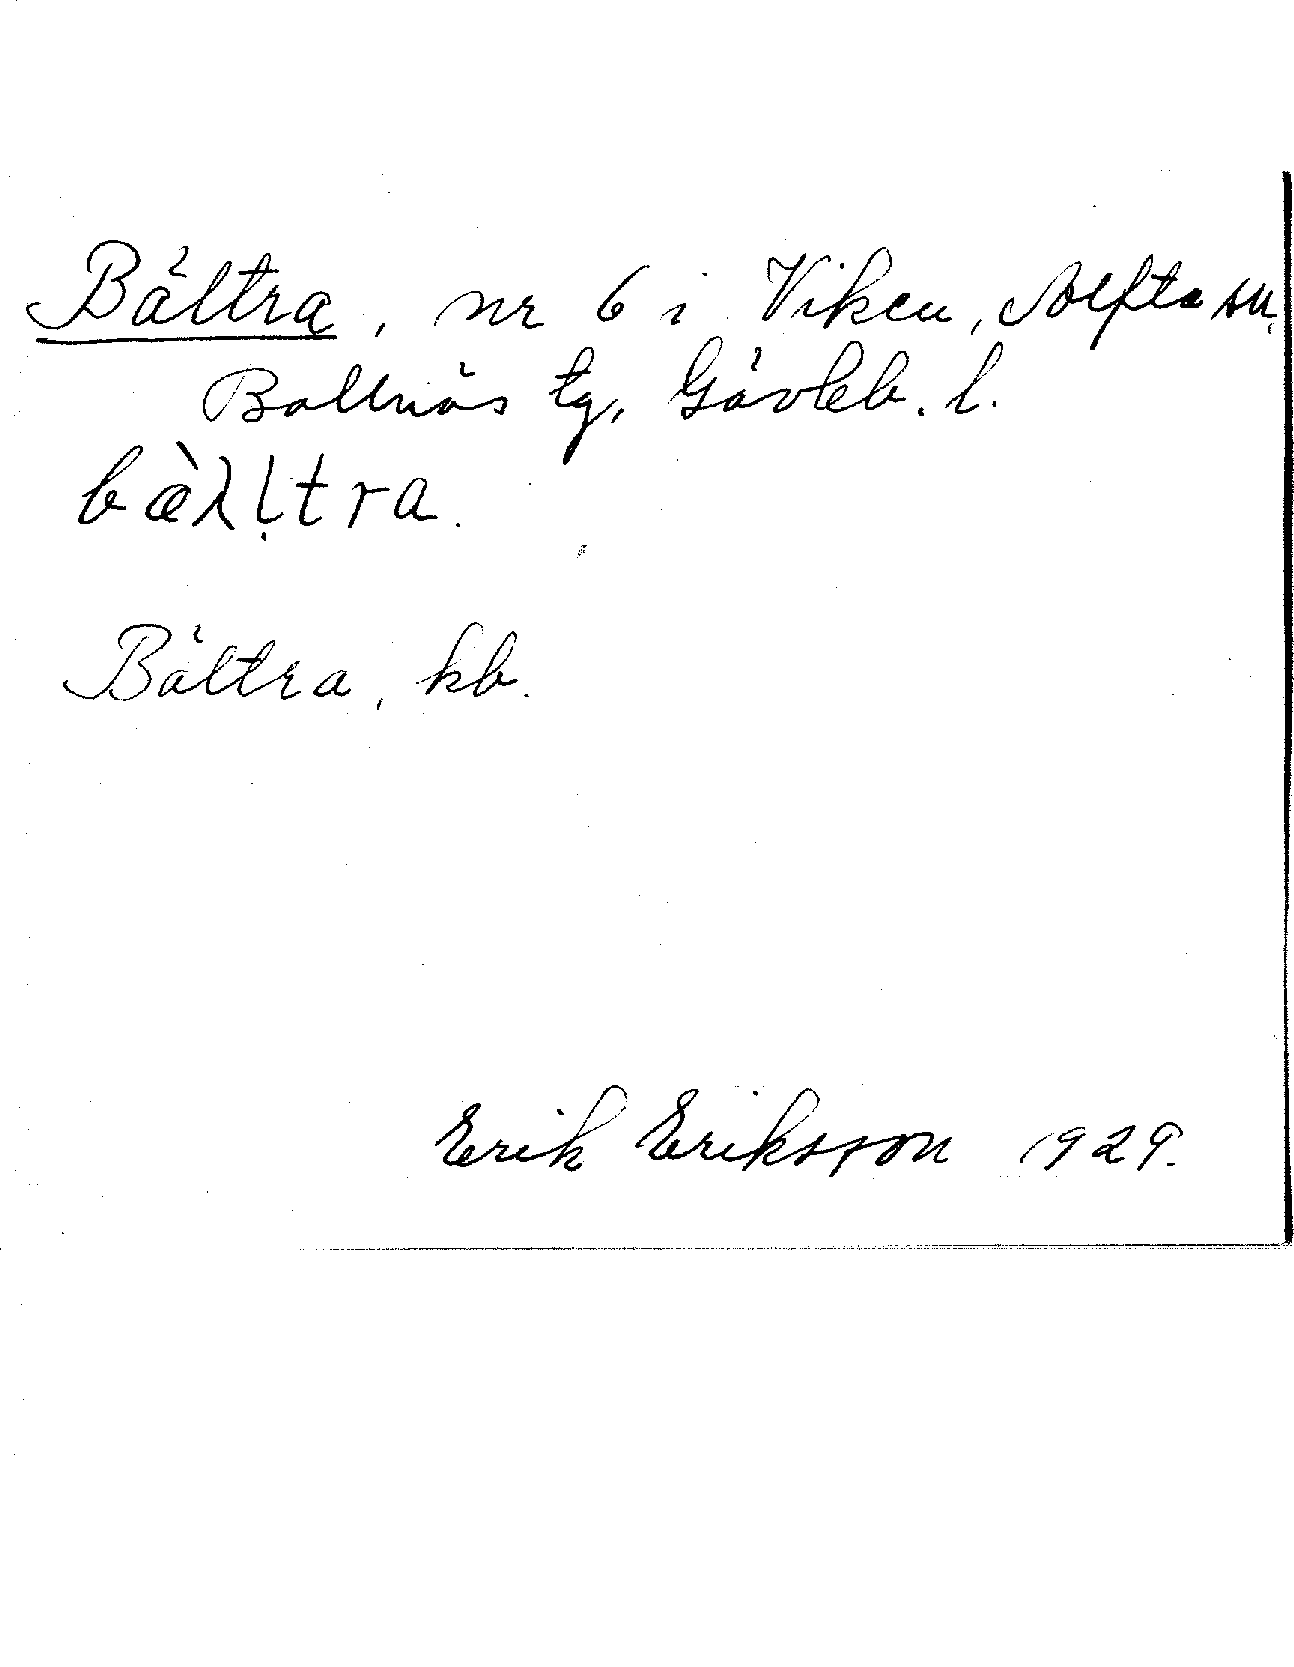 Bältra, nr 6 i Viken, Alfta sn,
Bollnäs tg, Gävleb. l.
bæ̀λḷtra.
Bältra, kb.
Erik Eriksson 1929.